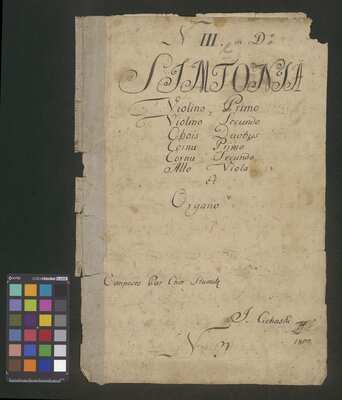 N III. D.
SIMFONIA
Violino Primo
Violino Secundo
Obois Duobus
Cornu Primo
Cornu Secundo
Alto Viola
et
Organo
Composée Par Chor Stamitz
J. Cichoski
1802